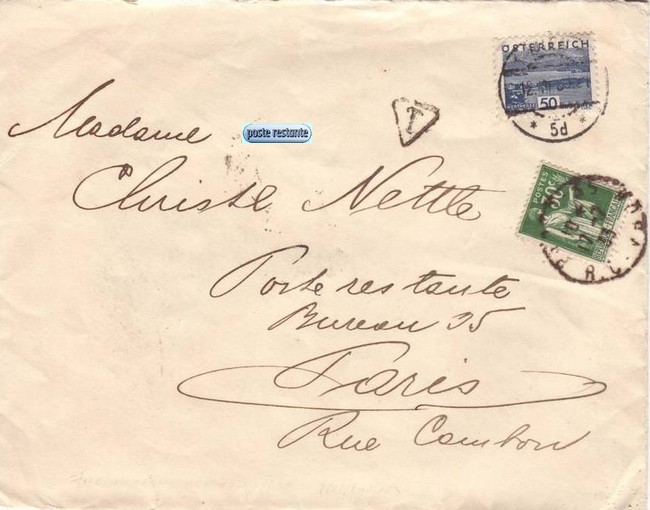 ÖSTERREICH
50
* 5d *
T
POSTES
Madame
poste restante
Christl Nettle
Poste restante
Bureau 35
Paris
Rue Cambon